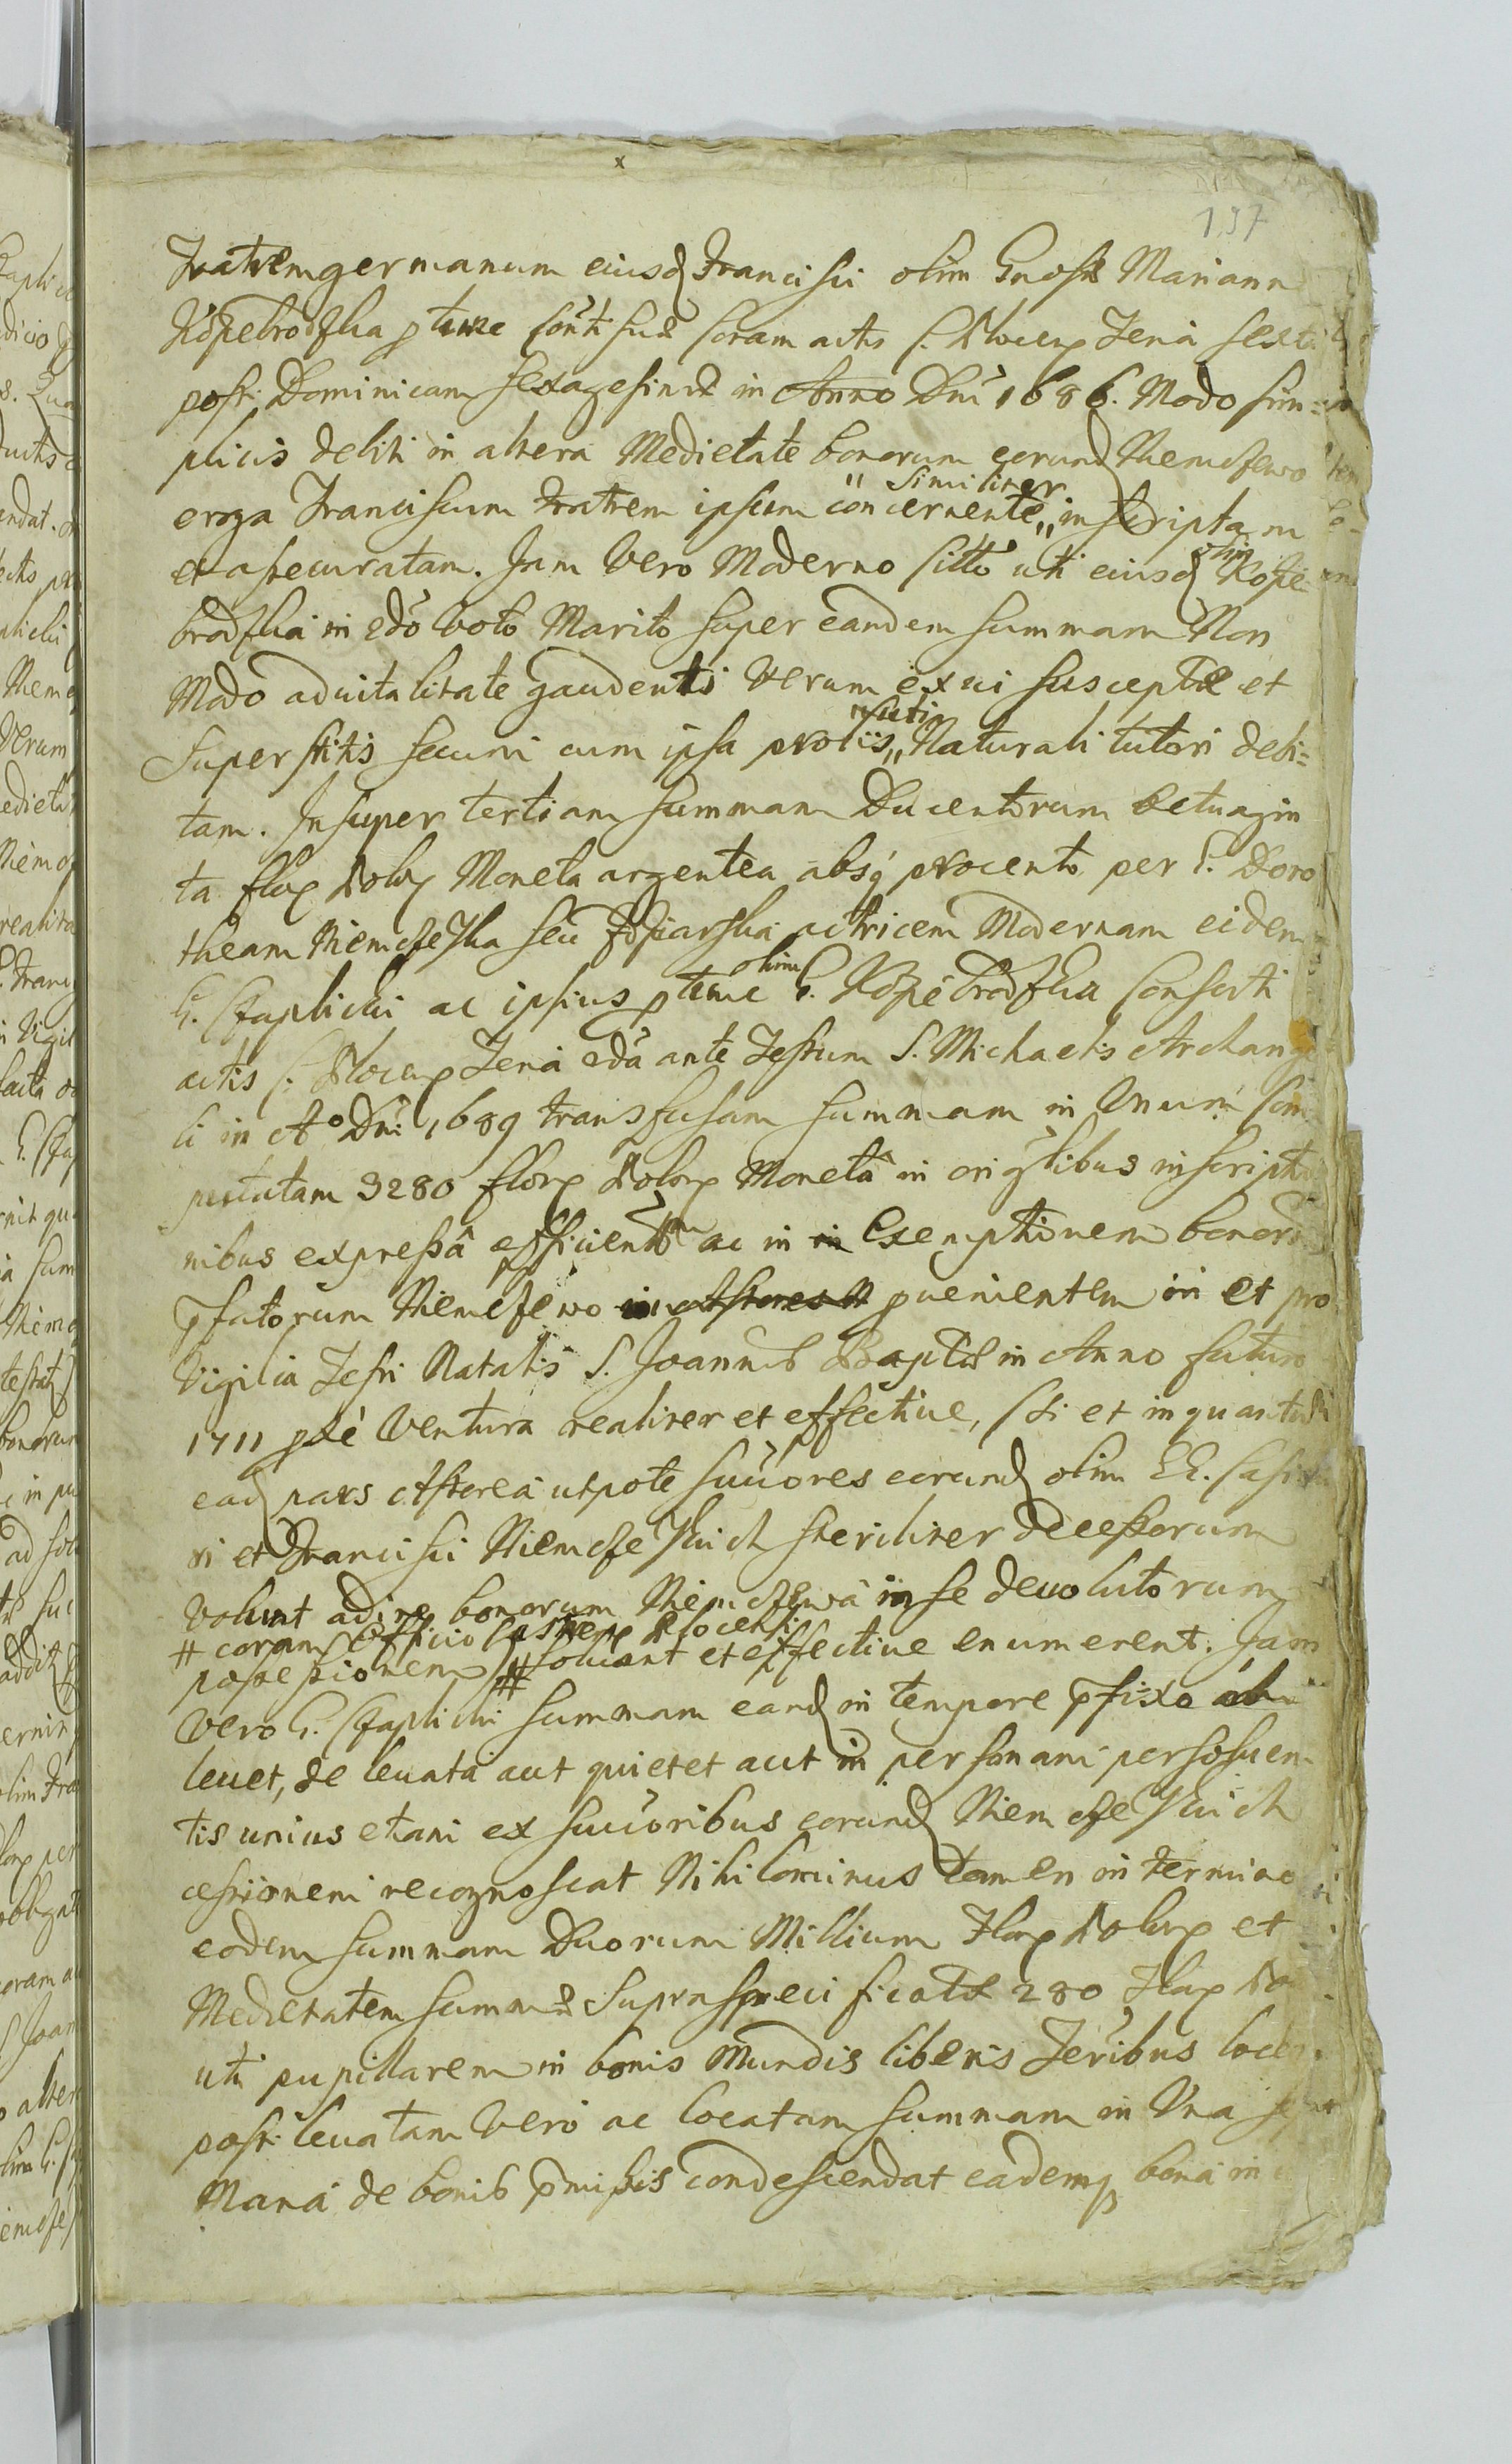 197
Fratrem germanum eiusd Francisci olim Gnosæ Mariannæ
Kopetrodzka ptunc Conti suæ coram actis C. Plocen Feria sexta
post Dominicam Sexagesimæ in Anno Dni 1686. Modo sim=
plicis debiti in altera Medietate bonorum eorund Niemczewo
erga Franciscum Fratrem ipsum concernente „ similiter „ inscriptam
et assecuratam. Jam Vero Moderno Citto uti eiusd olim Kope
trodzka in 2do voto Marito super eandem summam Non
Modo aduitalitate gaudenti verum ex ui susceptæ et
superstitis secum cum ipsa prolis „ suæ „ Naturali tutori debi=
tam. Insuper tertiam summam Ducentorum octuagin
ta flor polor Moneta argentea absq procento per G. Doro
theam Niemczewska seu actricem Modernam eidem
G. Czaplicki ac ipsius ptunc olim G. Kopetrodzka Consorti
actis C. Plocen Feria 2da ante Festum S. Michaelis Archange
li in Ao Dni 1689 transfusam summam in Unum com
putatam 3280 flor polor Moneta in originalibus inscriptio
nibus expressâ efficientem ac in in Exemptionem bonorum
pfatorum Niemczewo in Actores N puenientem in et pro
Vigilia Festi Natalis S. Joannis Baptæ in Anno futuro
1711 pxe Ventura realiter et effectiue, Si et in quantum
ead pars Actorea utpote succores eorund olim GG. Casimi
ri et Francisci Niemczewskich steriliter decessorum
Volunt adire bonorum Niemczewa in se deuolutorum
# coram Officio Castren Plocensi
possessionem # soluant et effectiue enumerent. Jam
Vero G. Czaplicki summam eand in tempore pfixo
leuet, de leuata aut quietet aut in personam persoluen
tis unius etiam ex succoribus eorund Niemczewskich
cessionem recognoscat Nihilominus tamen in termino
eodem summam Duorum Millium Flor polor et
Medietatem summæ supraspecificatæ 280 Flor pol
uti pupillarem in bonis Mundis liberis Terribus locet
post leuatam Vero ac locatam summam in Una septi
Mana de bonis pmissis condescendat eademq bona in